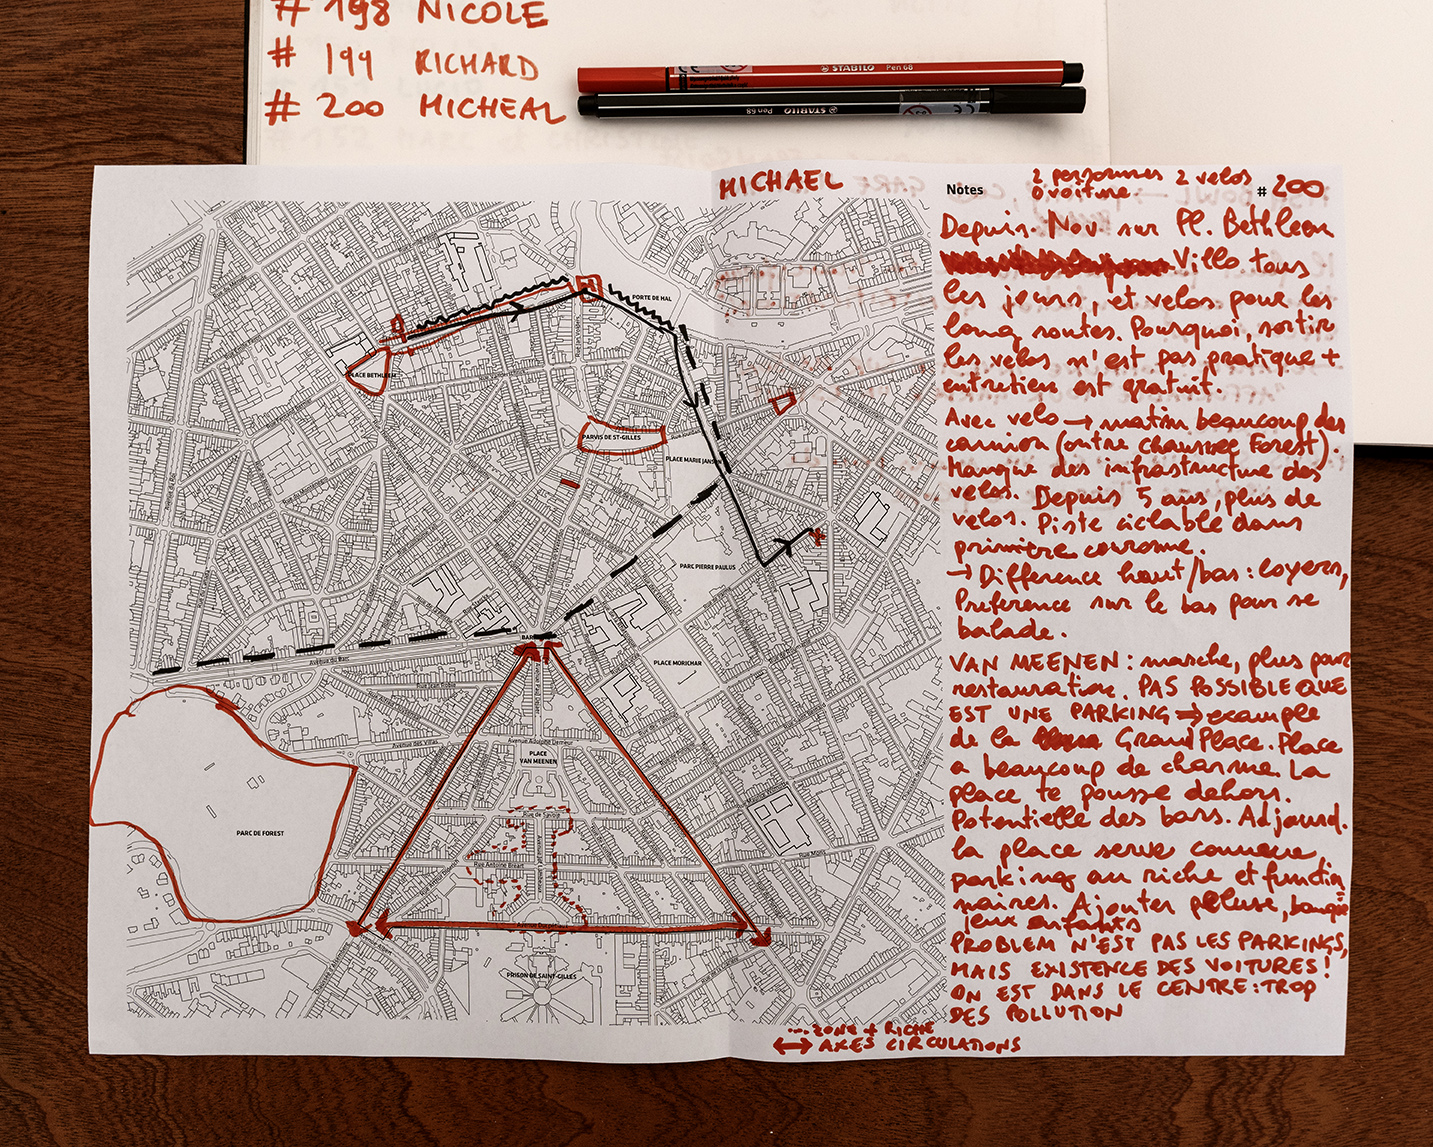 # 198 NICOLE
# 199 RICHARD
# 200 MICHEAL
STABILO Pen 68
STABILO Pen 68
MICHAEL
Notes
2 personnes 2 velos
0 voiture
# 200
Depuis Nov sur Pl. Bethleem
Villo tous
les jours, et velos pour les
long routes. Pourquoi, sortir
les velos n'est pas pratique +
entretien est gratuit.
Avec velo → matin beaucoup des
camion (entre chaussee Forest).
Manque des infrastructure des
velos. Depuis 5 ans, plus de
velos. Piste ciclable dans
première couronne.
→ Difference haut/bas: loyers,
Preference sur le bas pour se
balade.
VAN MEENEN: marche, plus pour
restauration. PAS POSSIBLE QUE
EST UNE PARKING ⇒ example
de la Grand Place. Place
a beaucoup de charme. La
place te pousse dehors.
Potentielle des bars. Adjourd.
la place serve comme
parking au riche et function
naires. Ajouter peluse, banque
jeux enfants
PROBLEM N'EST PAS LES PARKINGS,
MAIS EXISTENCE DES VOITURES!
ON EST DANS LE CENTRE: TROP
DES POLLUTION
PORTE DE HAL
PLACE BETHLEEM
PARVIS DE ST-GILLES
PLACE MARIE JANSON
PARC PIERRE PAULUS
BAR
Avenue du Parc
PLACE MORICHAR
Avenue des Villas
Avenue Adolphe Demeur
PLACE
VAN MEENEN
Rue de Savoie
PARC DE FOREST
Rue Antoine Bréart
Avenue Ducpétiaux
PRISON DE SAINT-GILLES
... ZONE + RICHE
↔ AXES CIRCULATIONS